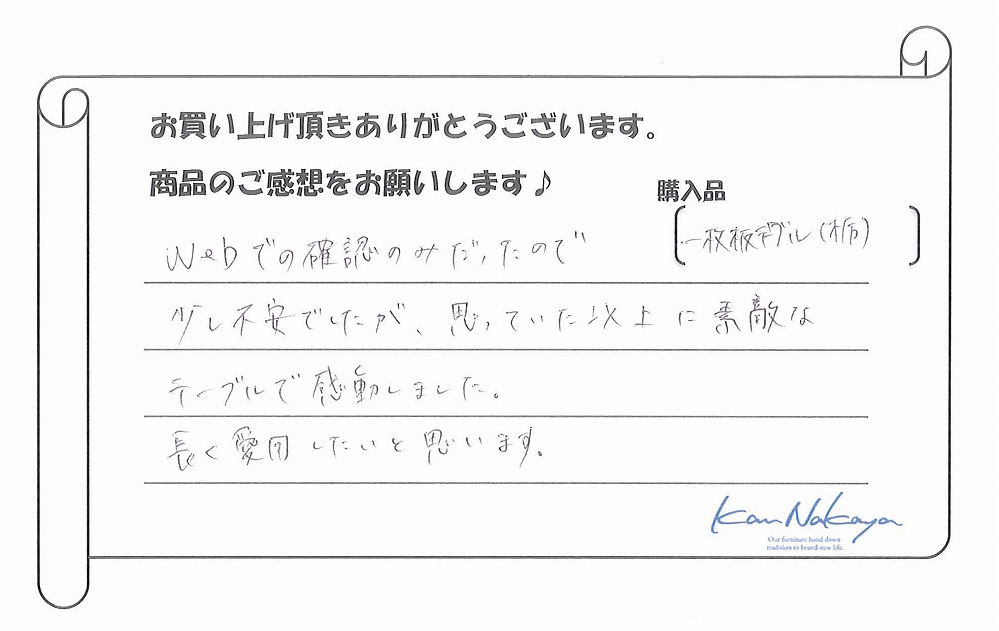 お買い上げ頂きありがとうございます。
商品のご感想をお願いします♪
購入品
一枚板テーブル(栃)
Webでの確認のみだったので
少し不安でしたが、思っていた以上に素敵な
テーブルで感動しました。
長く愛用したいと思います。
Kan Nakaya
Our furniture hand down
tradition to brand-new life.